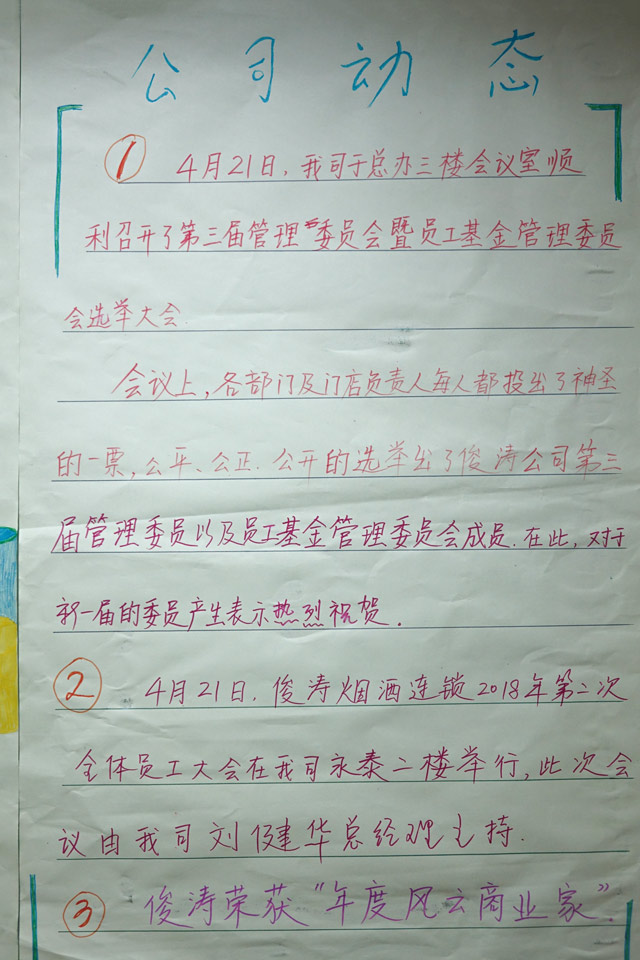 公司动态
① 4月21日,我司于总办三楼会议室顺
利召开了第三届管理委员会暨员工基金管理委员
会选举大会.
会议上,各部门及门店负责人每人都投出了神圣
的一票,公平、公正.公开的选举出了俊涛公司第三
届管理委员以及员工基金管理委员会成员.在此,对于
新一届的委员产生表示热烈祝贺.
② 4月21日.俊涛烟酒连锁2018年第二次
全体员工大会在我司永泰二楼举行,此次会
议由我司刘健华总经理主持.
③ 俊涛荣获“年度风云商业家”.